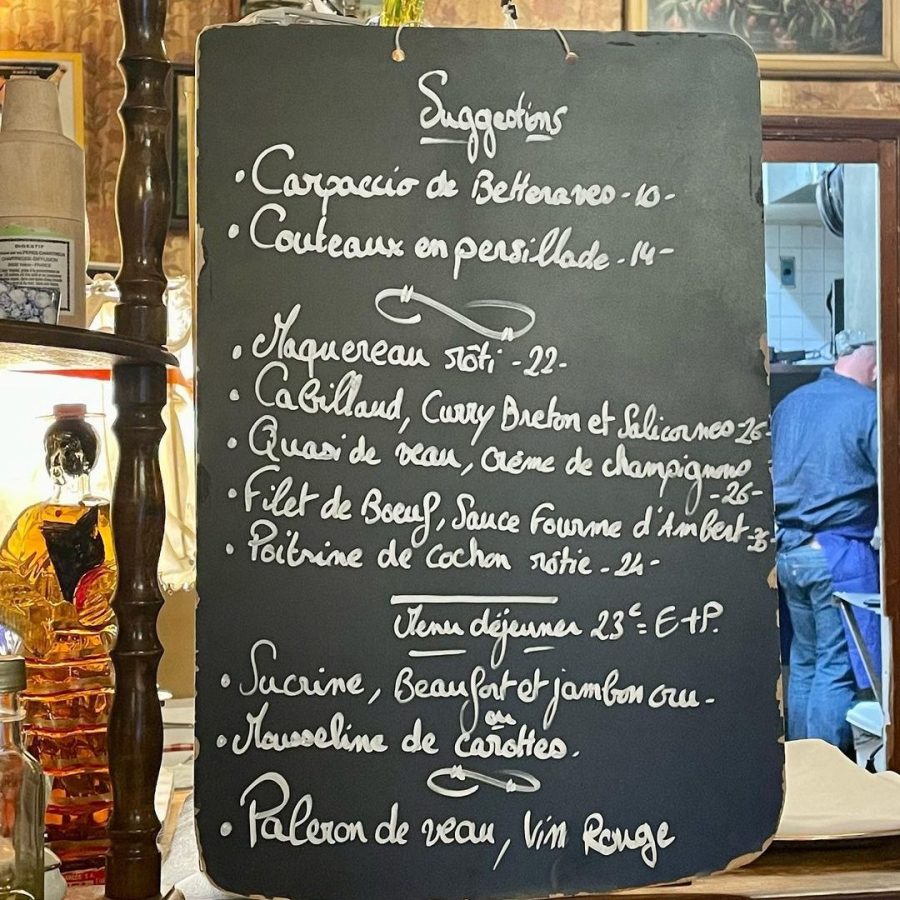 Suggestions
• Carpaccio de Betteraves - 10 -
• Couteaux en persillade - 14 -
• Maquereau rôti - 22 -
• Cabillaud, Curry Breton et Salicornes 26-
• Quasi de veau, crème de champignons
- 26 -
• Filet de Boeuf, Sauce Fourme d'Ambert -
• Poitrine de cochon rôtie - 24 -
Menu déjeuner 23€ = E+P.
• Sucrine, Beaufort et jambon cru -
ou
• Mousseline de carottes.
• Paleron de veau, Vin Rouge
DIGESTIF